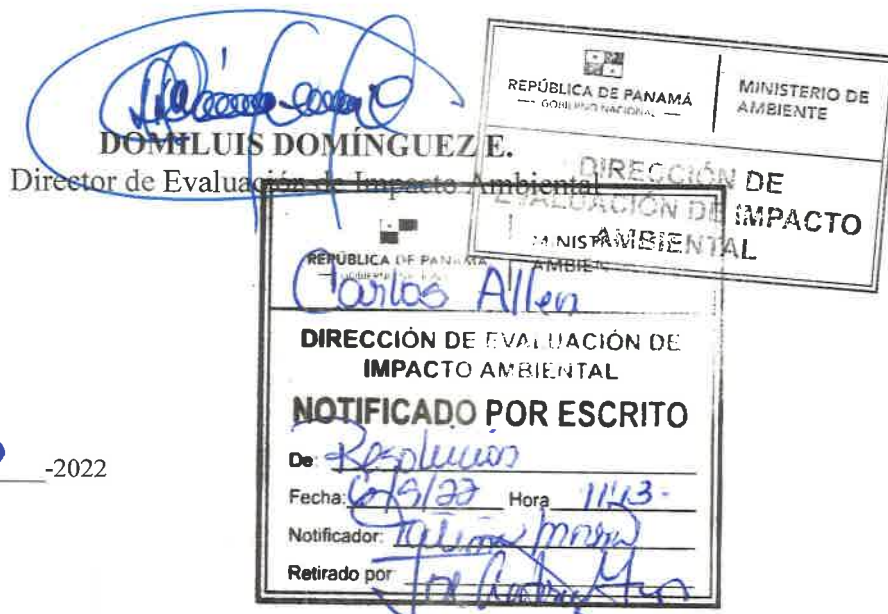 DOMILUIS DOMÍNGUEZ E.
Director de Evaluación de Impacto Ambiental
REPÚBLICA DE PANAMÁ
— GOBIERNO NACIONAL —
MINISTERIO DE
AMBIENTE
DIRECCIÓN DE
EVALUACIÓN DE IMPACTO
AMBIENTAL
REPÚBLICA DE PANAMÁ
Carlos Allen
DIRECCIÓN DE EVALUACIÓN DE
IMPACTO AMBIENTAL
NOTIFICADO POR ESCRITO
De: Resolución
Fecha: /9/22 Hora 11:13
Notificador:
Retirado por
-2022